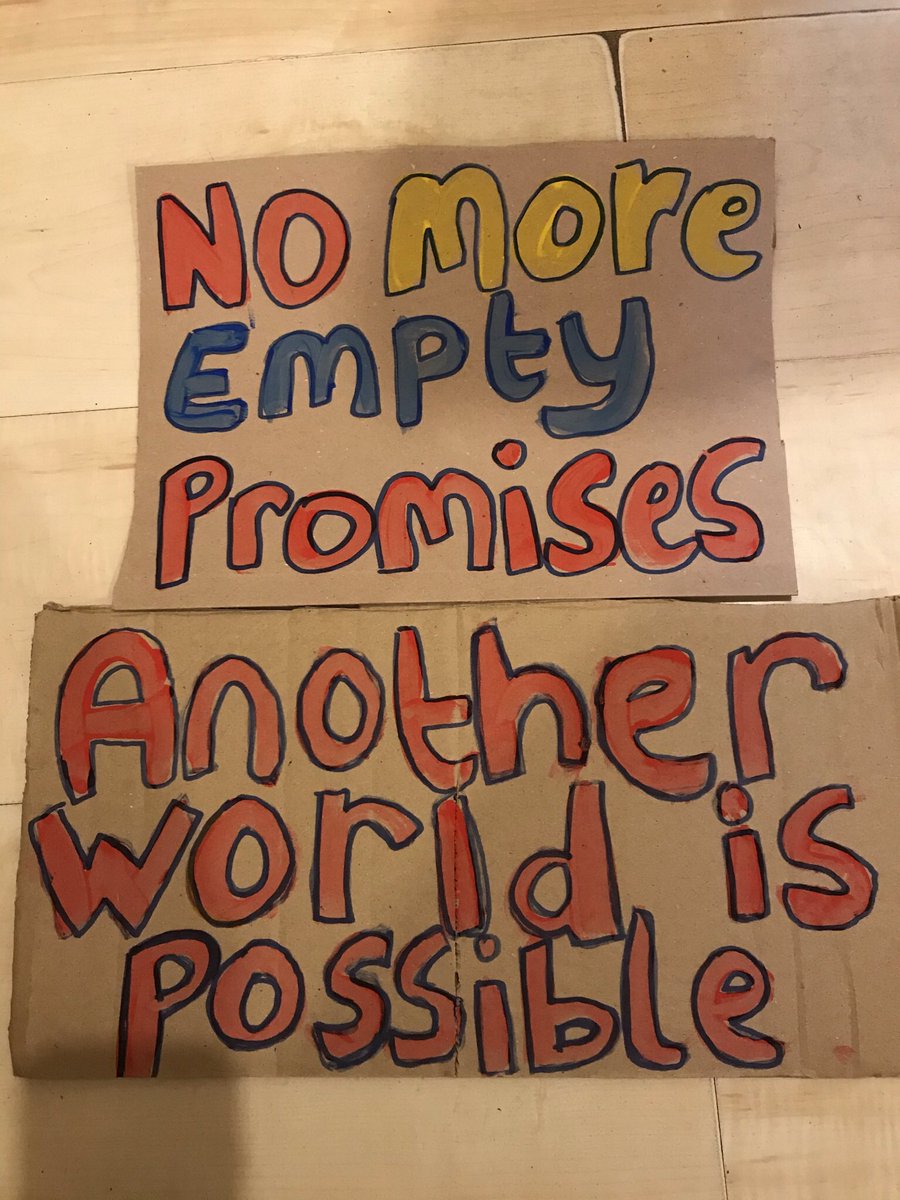 No more
Empty
Promises
Another
world is
Possible